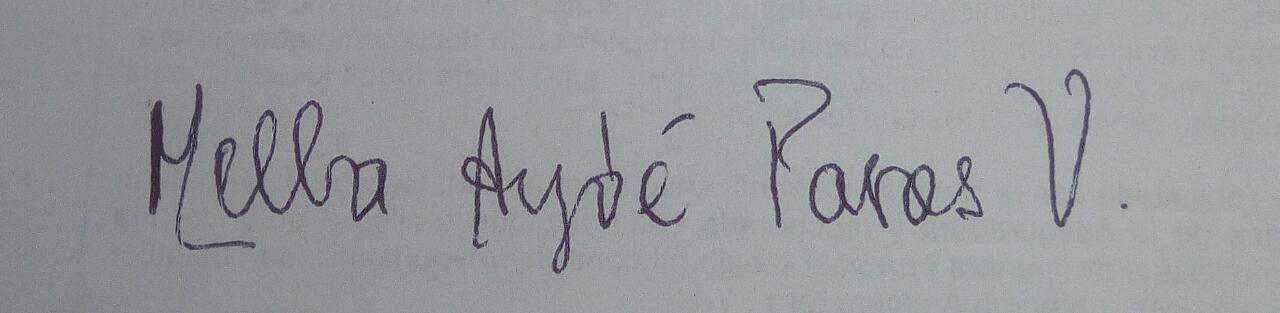 Melba Aydé Paras V.